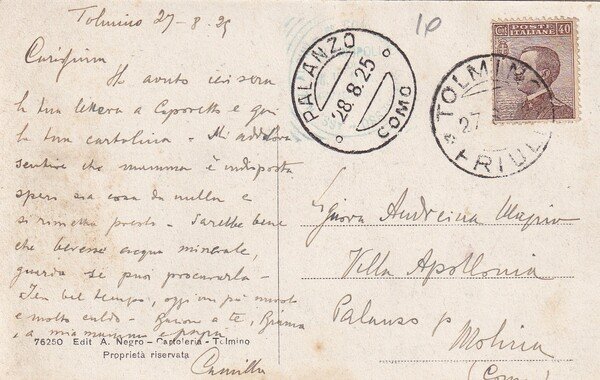 Tolmino 27-8.25
Carissima
Ho avuto ieri sera
la tua lettera a Caporetto e qui
la tua cartolina - Mi addolora
sentire che mamma è indisposta
spero sia cosa da nulla e
si rimetta presto - Sarebbe bene
che bevesse acqua minerale,
guarda se puoi procurarla -
Ieri bel tempo, oggi un po'
e molto caldo - Bacioni a te, Bianca
, a mia mamma e papà
Camilla
76250 Edit A. Negro - Cartoleria - Tolmino
Proprietà riservata
PALANZO
28.8.25
COMO
10
POSTE
ITALIANE
40
TOLMINO
27
FRIULI
Signora Andreina
Villa Apollonia
Palanzo p
Molina
(Como)